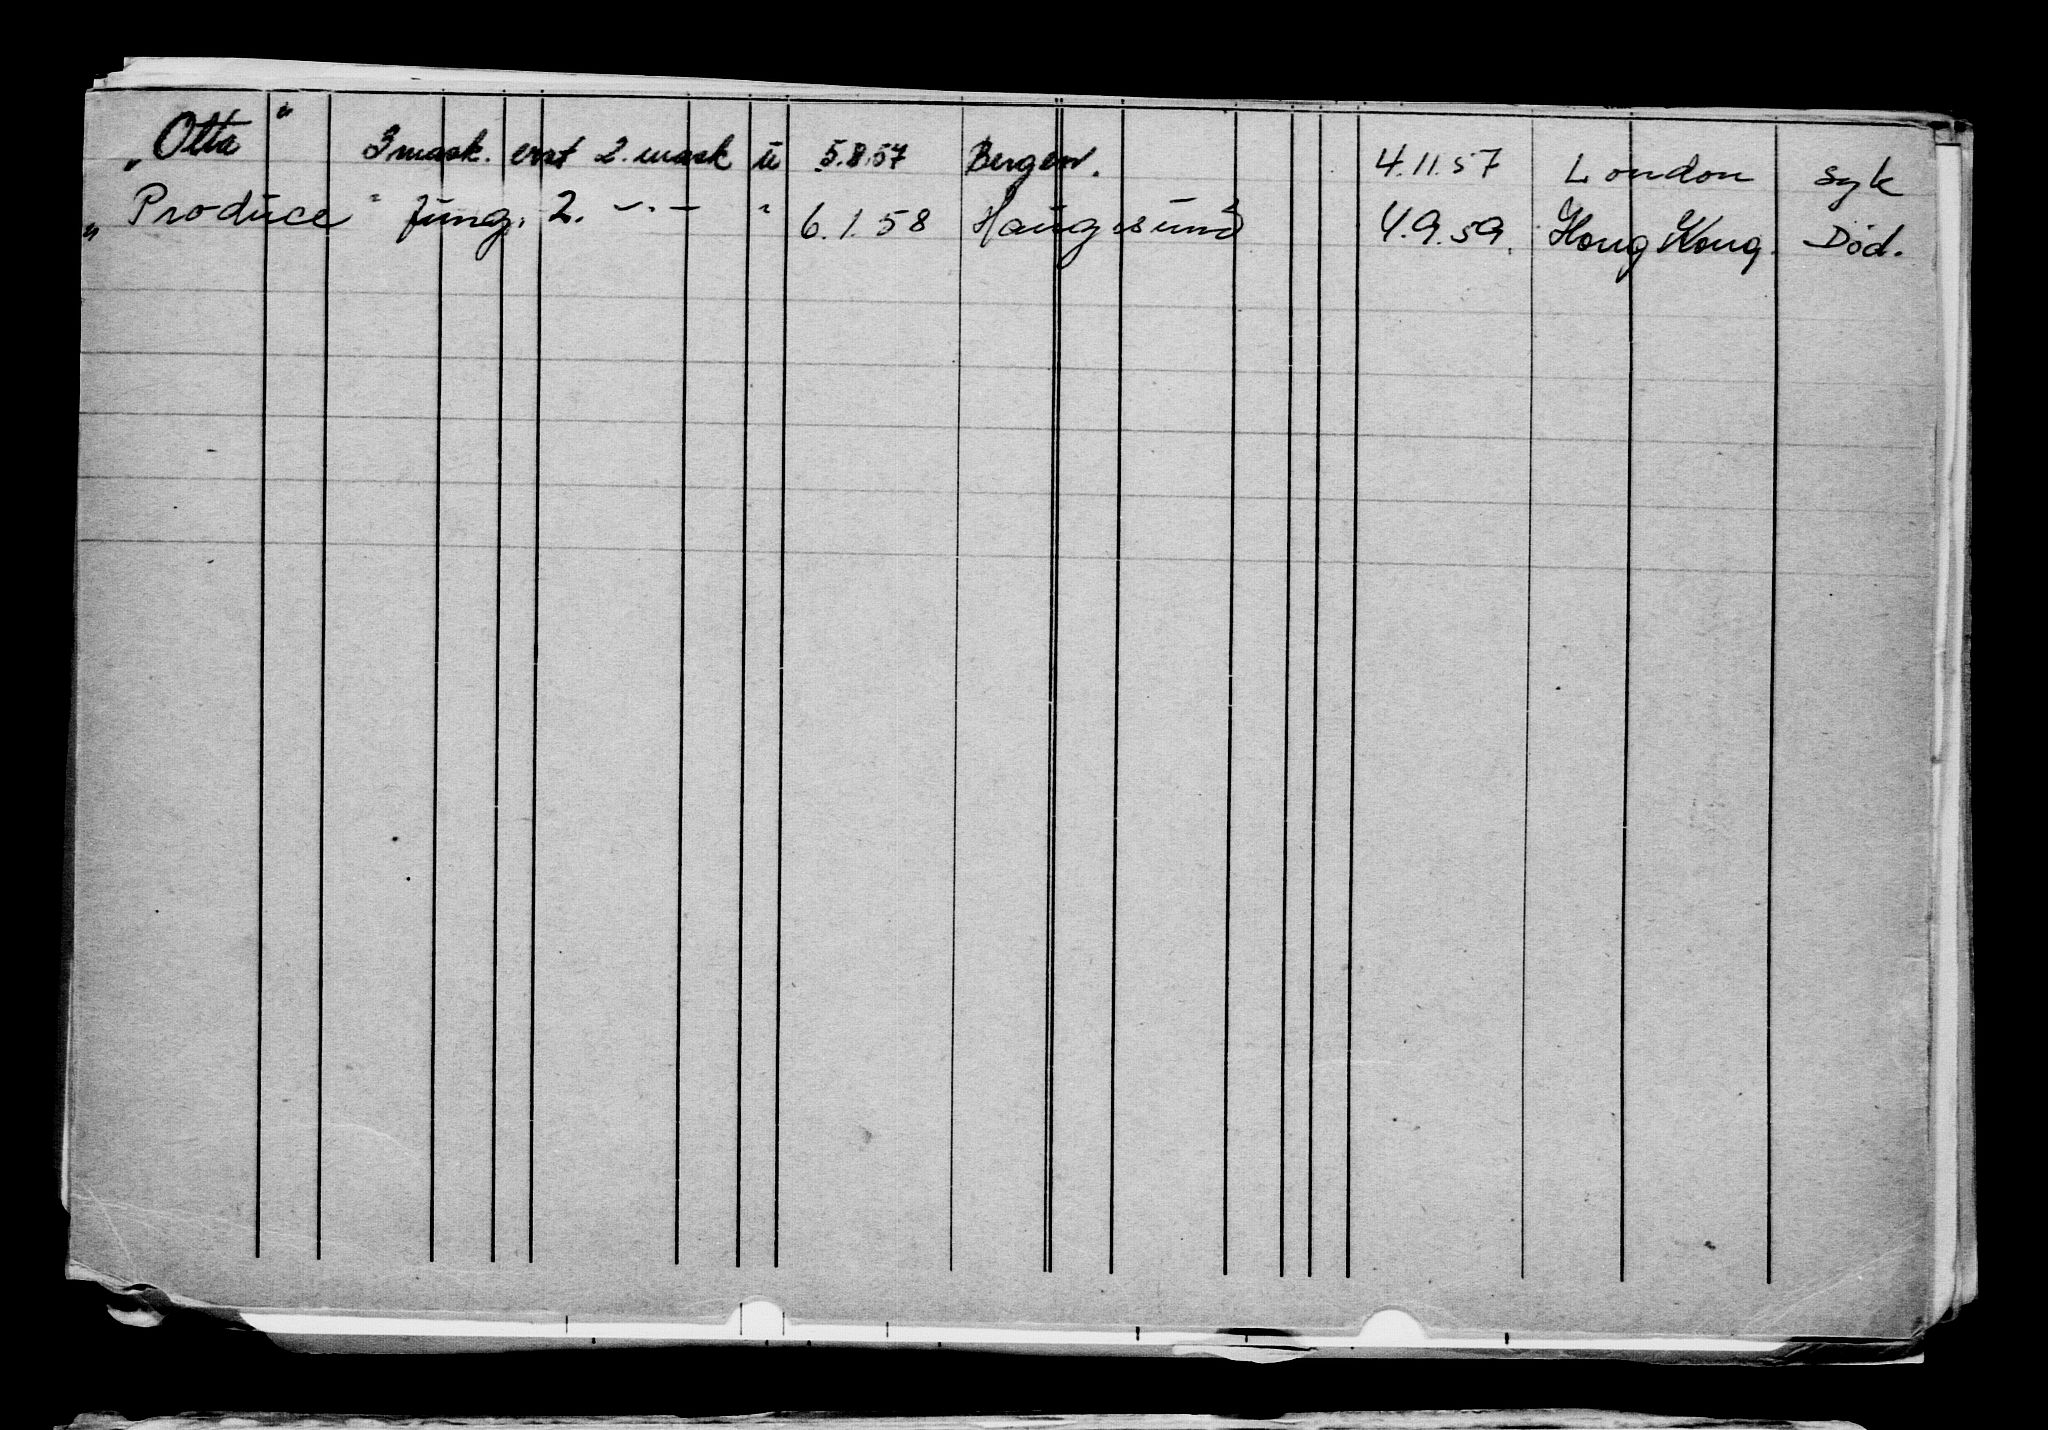 „Otta" 3 mask. erst 2. mask ū 5.8.57 Bergen. 4.11.57 London syk
„Produce" Jung. 2. -"- " 6.1.58 Haugesund 4.9.59. Hong Kong. Død.